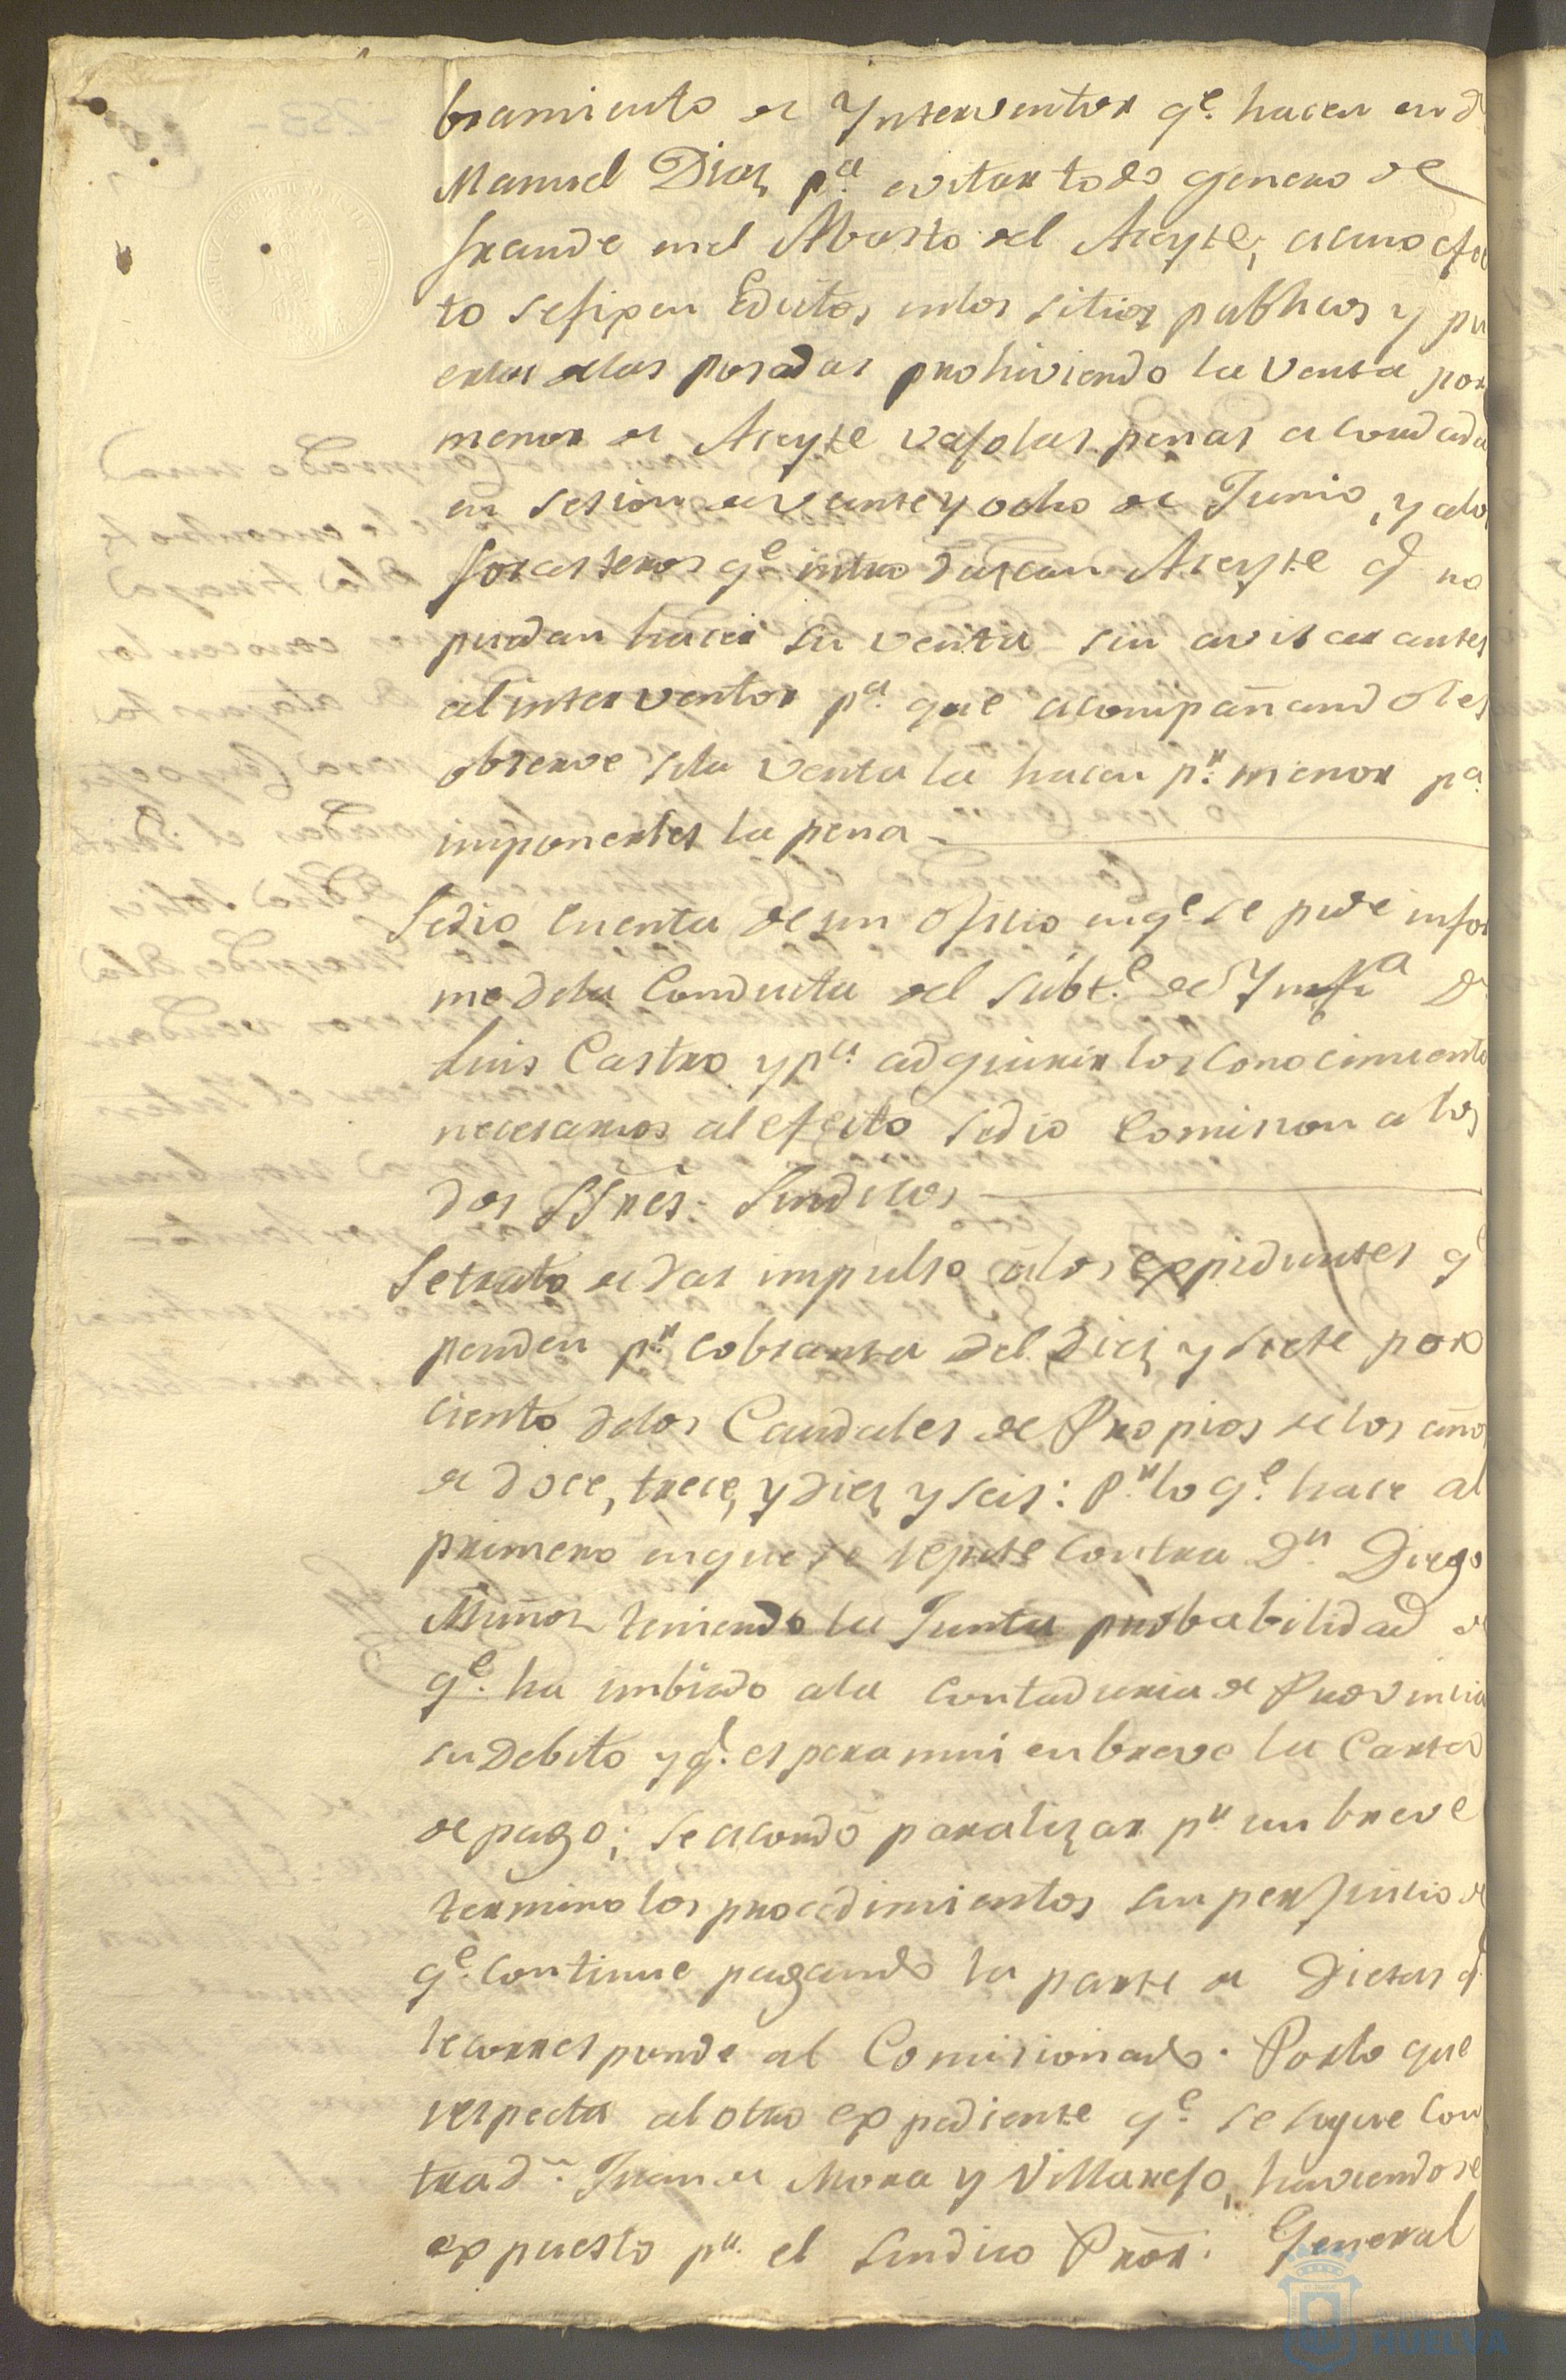 bramiento de Ynterventor q.e hacen en d.n
Manuel Diaz p.a evitar todo genero de
fraude en el Abasto del Aceyte, a cuno efec
to se fixen Edictos en los sitios publicos y pu
ertas de las posadas prohiviendo la venta por
menor de Aceyte vajo las penas acordadas
en sesion de veinte y ocho de Junio, y a los
forasteros q.e introduzcan Aceyte q.e no
puedan hacer su venta sin avisar antes
al interventor p.a que acompañandoles
observe si la venta la hacen p.r menor p.a
imponerles la pena
Se dio cuenta de un oficio en q.e se pide infor
me de la Conducta del Subt.e de Ynf.a D.n
Luis Castro y p.a adquirir los conocimientos
necesarios al efecto se dio Comision a los
dos SSres. Sindicos
Se trato de dar impulso a los expedientes q.e
penden p.r cobranza del diez y siete por
ciento de los Caudales de Propios de los años
de doce, trece, y diez y seis: P.r lo q.e hace al
primero en que se repite contra D.n Diego
Muñoz teniendo la Junta probabilidad de
q.e ha imbiado a la Contaduria de Provincia
su Debito y q.e espera mui en breve la Carta
de pago; se acordó paralizar p.r un breve
termino los procedimientos sin perjuicio de
q.e continue pagando la parte de Dietas q.e
le corresponde al Comisionado. Por lo que
respecta al otro expediente q.e se sigue con
tra d.n Juan de Mora y Villarejo, haviendose
expuesto p.r el Sindico Pror. General
HUELVA